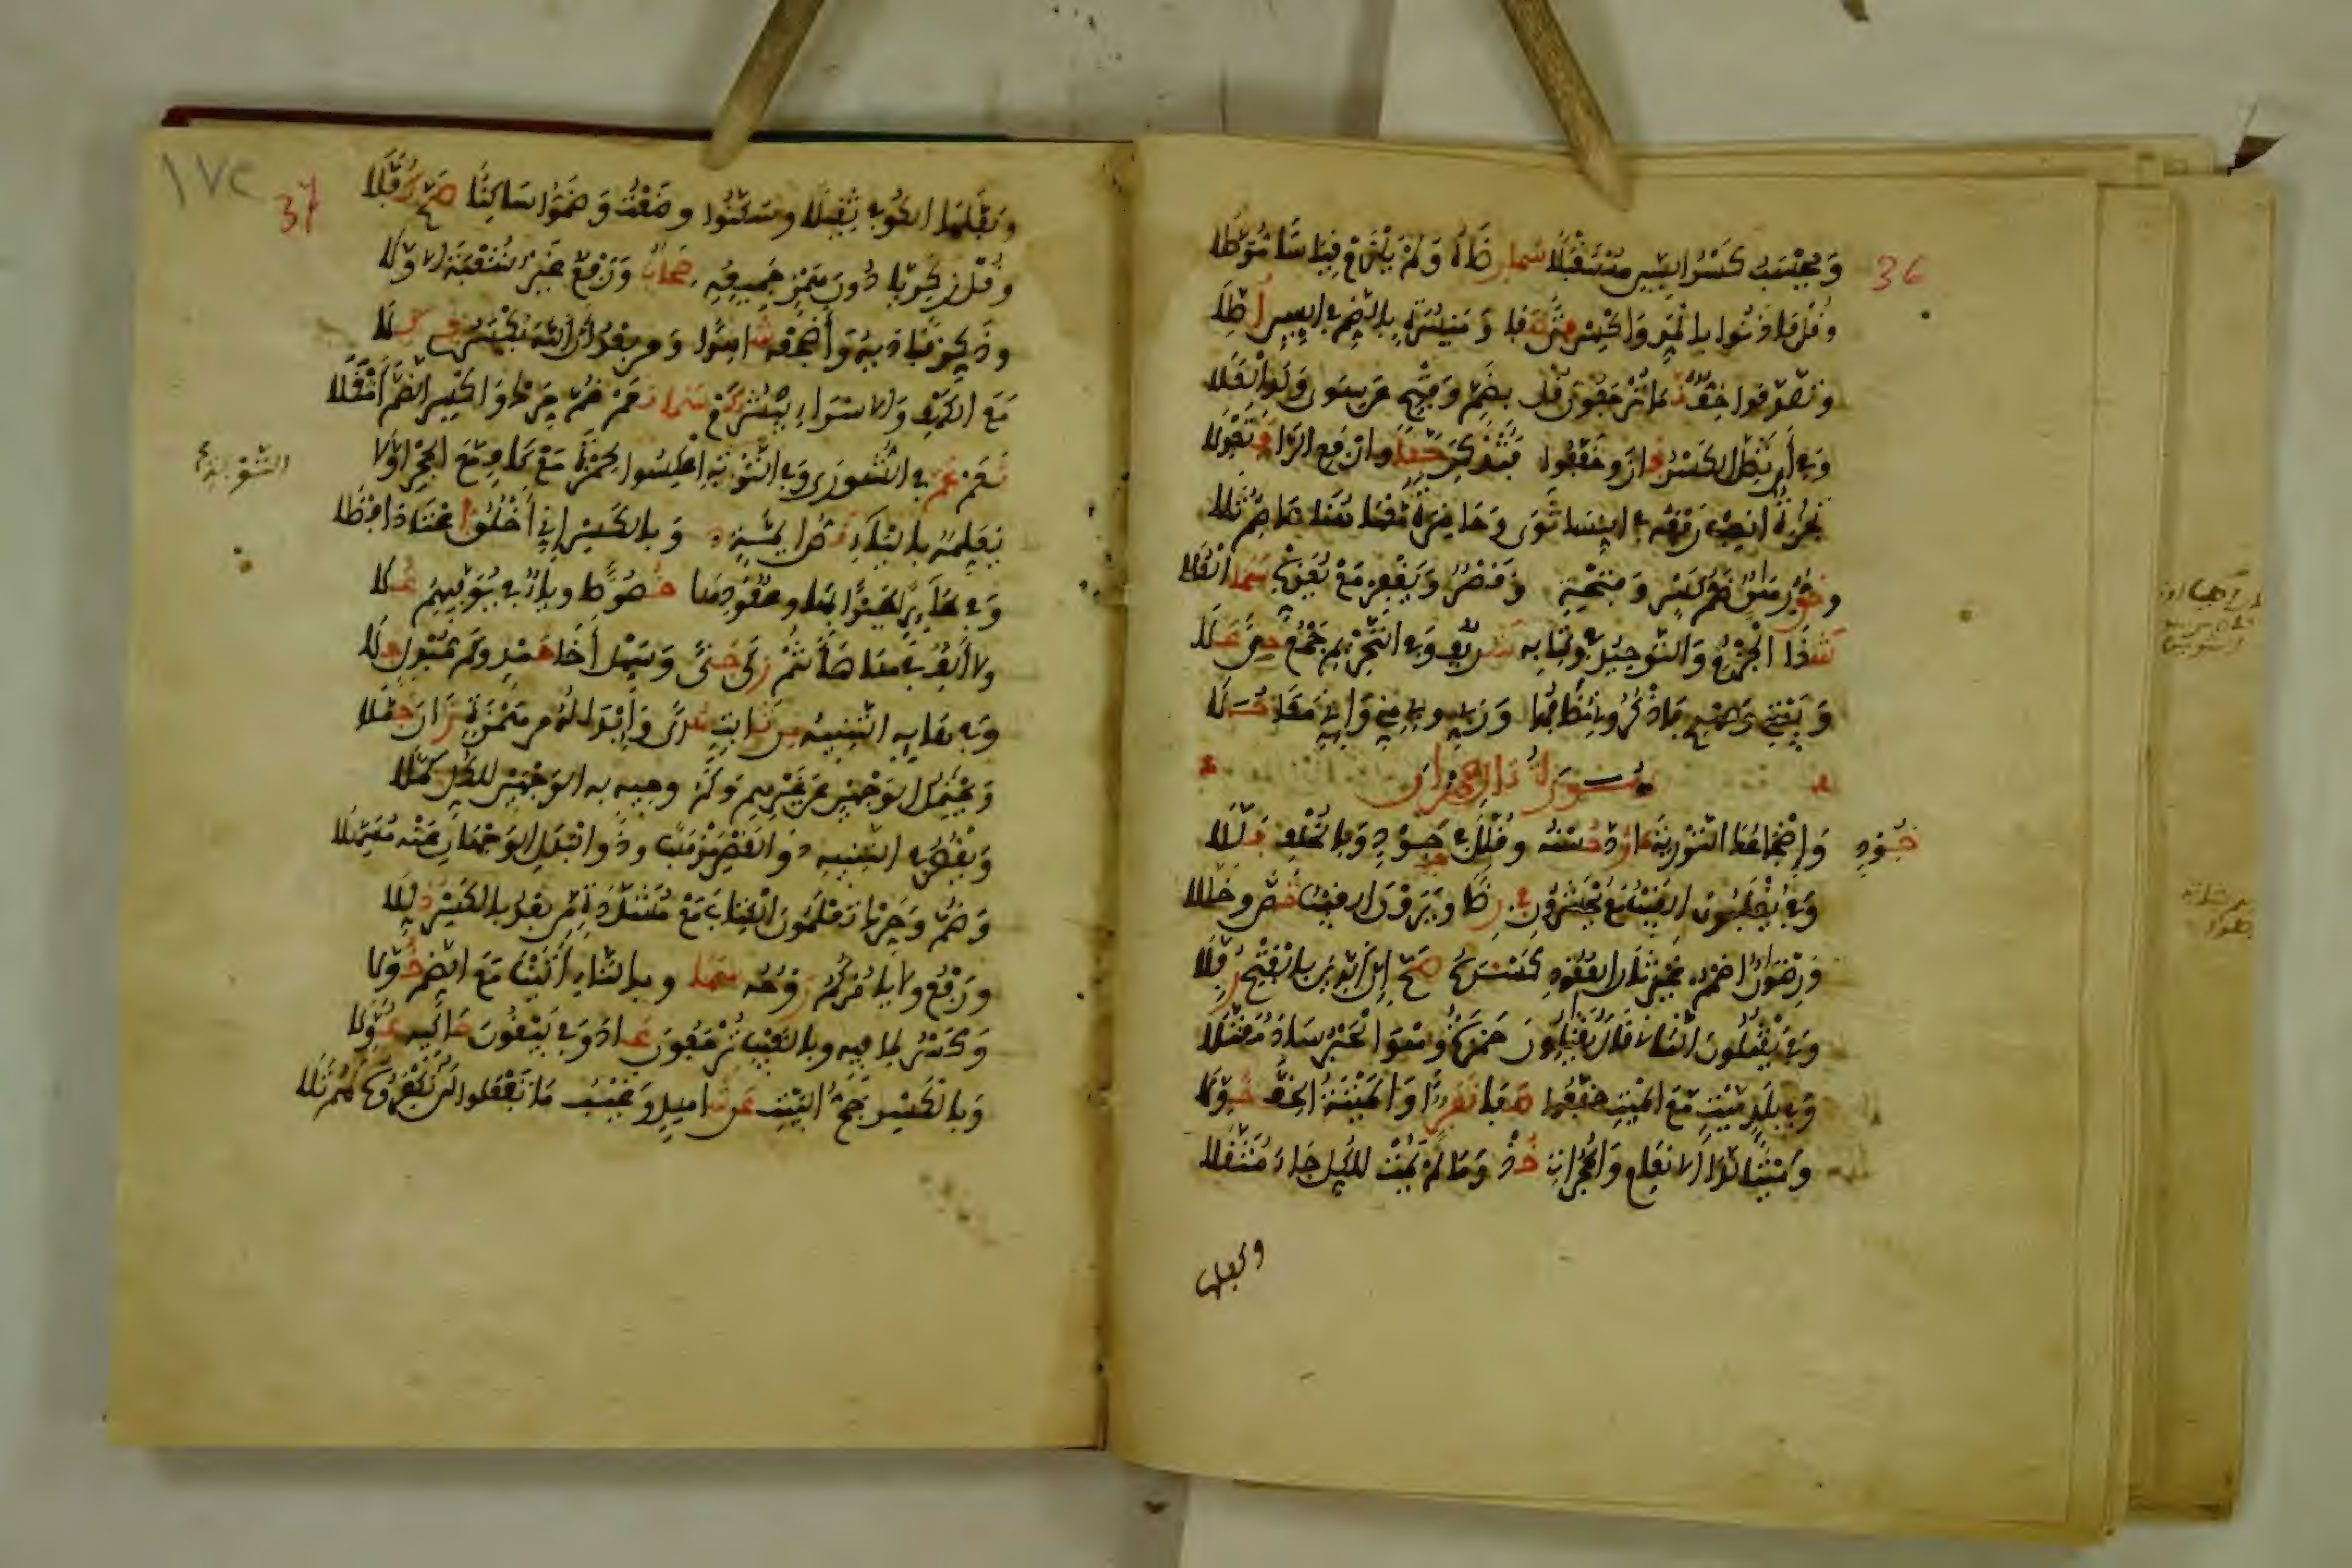 36
وَيَحْسَبُ كَسْرُ السِّينِ مُسْتَقْبَلًا سَمَا رِضَاهُ وَلَمْ يَلْزَمْ قِيَاسًا مُؤَصَّلَا
وَقُلْ فَأْذَنُوا بِالْمَدِّ وَاكْسِرْ فَتًى صَفَا وَمَيْسُرَةٍ بِالضَّمِّ فِي السِّينِ أُصِّلَا
وَتَصَّدَّقُوا خِفٌّ نَمَا تُرْجَعُونَ قُلْ بِضَمٍّ وَفَتْحٍ عَنْ سِوَى وَلَدِ الْعَلَا
وَفِي أَنْ تَضِلَّ الْكَسْرُ فَازَ وَخَفَّفُوا فَتُذْكِرَ حَقًّا وَارْفَعِ الرَّا فَتَعْدِلَا
تِجَارَةٌ انْصِبْ رَفْعَهُ فِي النِّسَا ثَوَى وَحَاضِرَةٌ مَعْهَا هُنَا عَاصِمٌ تَلَا
وَحَقُّ رِهَانٍ ضَمُّ كَسْرٍ وَفَتْحَةٍ وَقَصْرٌ وَيَغْفِرْ مَعْ يُعَذِّبْ سَمَا الْعُلَا
شَذَا الْجَزْمِ وَالتَّوْحِيدُ فِي وَكِتَابِهِ شَرِيفٌ وَفِي التَّحْرِيمِ جَمْعُ حِمًى عَلَا
وَبَيْتِي وَعَهْدِي فَاذْكُرُونِي مُضَافُهَا وَرَبِّي وَبِي مِنِّي وَإِنِّي مَعًا حُلَا
سورة ءال عمران
وَإِضْجَاعُكَ التَّوْرَيةَ مَا رُدَّ حُسْنُهُ وَقُلِّلَ فِي جَوْدٍ وَبِالْخُلْفِ بَلَّلَا
جَوْدٍ
وَفِي يُغْلَبُونَ الْغَيْبُ مَعْ يُحْشَرُونَ فِي رِضًا وَيَرَوْنَ الْغَيْبُ خُصَّ وَخُلِّلَا
وَرِضْوَانٌ اضْمُمْ غَيْرَ ثَانِ الْعُقُودِ كَسْرَهُ صَحَّ إِنَّ الدِّينَ بِالْفَتْحِ رُفِّلَا
وَفِي يَقْتُلُونَ الثَّانِ قَالَ يُقَاتِلُونَ حَمْزَةُ وَهْوَ الْحَبْرُ سَادَ مُقَتَّلَا
وَفِي بَلَدٍ مَيْتٍ مَعَ الْمَيْتِ خَفَّفُوا صَفَا نَفَرًا وَالْمَيْتَةُ الْخِفُّ خُوِّلَا
وَمَيْتًا لَدَى الْأَنْعَامِ وَالْحُجُرَاتِ خُذْ وَمَا لَمْ يَمُتْ لِلْكُلِّ جَاءَ مُثَقَّلَا
وكفلها
١٧٢
37
وَكَفَّلَهَا الْكُوفِي ثَقِيلًا وَسَكَّنُوا وَضَعْتُ وَضَمُّوا سَاكِنًا صَحَّ كُفَّلَا
وَقُلْ زَكَرِيَّا دُونَ هَمْزِ جَمِيعِهِ صِحَابٌ وَرَفْعٌ غَيْرُ شُعْبَةَ الْأَوَّلَا
وَذَكِّرْ فَنَادَيهُ وَأَضْجِعْهُ شَاهِدًا وَمِنْ بَعْدُ أَنَّ اللهَ يُكْسَرُ فِي كِلَا
مَعَ الْكَهْفِ وَالْإِسْرَاءِ يَبْشُرُ كَمْ سَمَا نَعَمْ ضُمَّ حَرِّكْ وَاكْسِرِ الضَّمَّ أَثْقَلَا
نَعَمْ عَمَّ فِي الشُّورَى وَفِي التَّوْبَةِ اعْكِسُوا لِحَمْزَةَ مَعْ كَافٍ مَعَ الْحِجْرِ أَوَّلَا
نُعَلِّمُهُ بِالْيَاءِ نَصُّ أَئِمَّةٍ وَبِالْكَسْرِ إِنِّي أَخْلُقُ اعْتَادَ أَفْصَلَا
وَفِي طَائِرًا طَيْرًا بِهَا وَعُقُودِهَا خُصُوصًا وَيَاءٌ فِي يُوَفِّيهِمُ عَلَا
وَلَا أَلِفٌ فِي هَا هَأَنْتُمْ زَكَى جَنًى وَسَهِّلْ أَخَا حَمْدٍ وَكَمْ مُبْدِلٍ جَلَا
وَفِي هَائِهِ التَّنْبِيهُ مِنْ ثَابِتٍ هُدًى وَإِبْدَالُهُ مِنْ هَمْزَةٍ زَانَ جَمَّلَا
وَيَحْتَمِلُ الْوَجْهَيْنِ عَنْ غَيْرِهِمْ وَكَمْ وَجِيهٍ بِهِ الْوَجْهَيْنِ لِلْكُلِّ حَمَّلَا
وَيَقْصُرُ فِي التَّنْبِيهِ ذُو الْقَصْرِ مَذْهَبًا وَذُو الْبَدَلِ الْوَجْهَانِ عَنْهُ مُسَهِّلَا
وَضُمَّ وَحَرِّكْ تَعْلَمُونَ الْكِتَابَ مَعْ مُشَدَّدَةٍ مِنْ بَعْدُ بِالْكَسْرِ ذُلِّلَا
وَرَفْعُ وَلَا يَأْمُرْكُمُ رُوحُهُ سَمَا وَبِالتَّاءِ آتَيْنَا مَعَ الضَّمِّ خُوِّلَا
وَكَسْرُ لِمَا فِيهِ وَبِالْغَيْبِ تُرْجَعُونَ عَادَ وَفِي يَبْغُونَ حَاكِيهِ عَوَّلَا
وَبِالْكَسْرِ حَجُّ الْبَيْتِ عَنْ شَاهِدٍ وَغَيْبُ مَا تَفْعَلُوا لَنْ تُكْفَرُوهُ لَهُمْ تَلَا